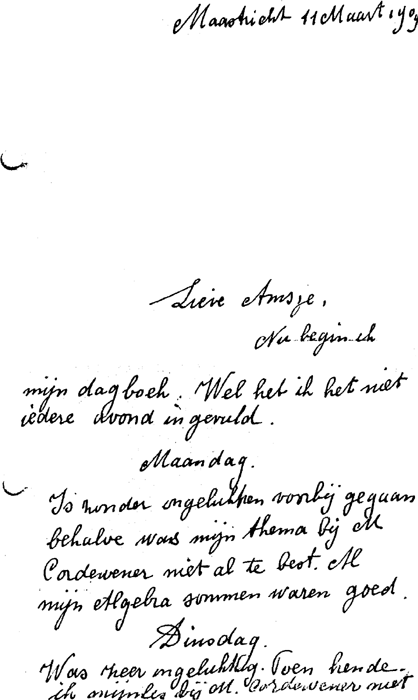 Maastricht 11 Maart 190
Lieve Amsje,
Nu begin ik
mijn dagboek. Wel het ik het niet
iedere avond ingevuld.
Maandag.
Is zonder ongelukken voorbij gegaan
behalve was mijn thema bij M
Cordewener niet al te best. Al
mijn Algebra sommen waren goed.
Dinsdag.
Was zeer ongelukkig. Toen kende
ik mijn les bij M. Cordewener niet